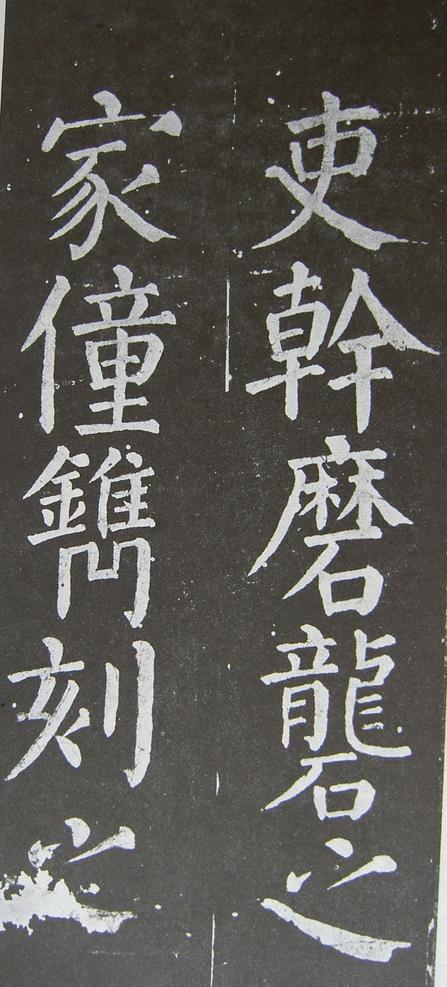 吏幹磨礱之
家僮鐫刻之